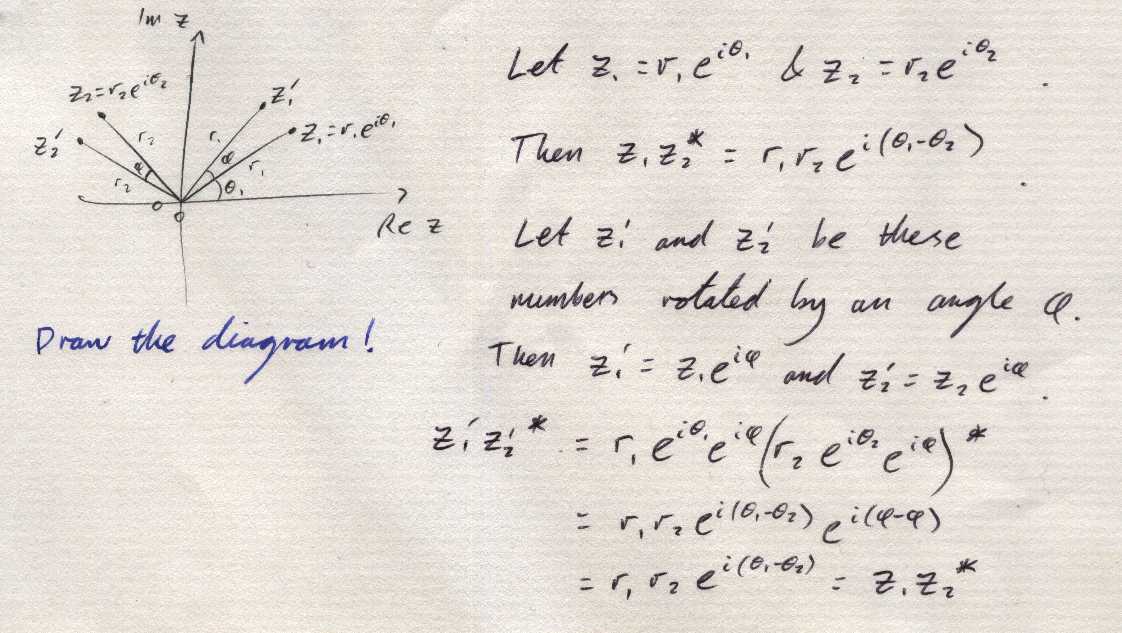 Im z
z₂=r₂e^{iθ₂}
z₁′
z₂′
r₂
r₁
z₁=r₁e^{iθ₁}
φ
φ
r₂
r₁
θ₁
0
Re z
Draw the diagram!
Let z₁=r₁e^{iθ₁} & z₂=r₂e^{iθ₂}.
Then z₁z₂* = r₁r₂e^{i(θ₁-θ₂)}.
Let z₁′ and z₂′ be these
numbers rotated by an angle φ.
Then z₁′ = z₁e^{iφ} and z₂′ = z₂e^{iφ}.
z₁′z₂′* = r₁e^{iθ₁}e^{iφ}(r₂e^{iθ₂}e^{iφ})*
= r₁r₂e^{i(θ₁-θ₂)}e^{i(φ-φ)}
= r₁r₂e^{i(θ₁-θ₂)} = z₁z₂*